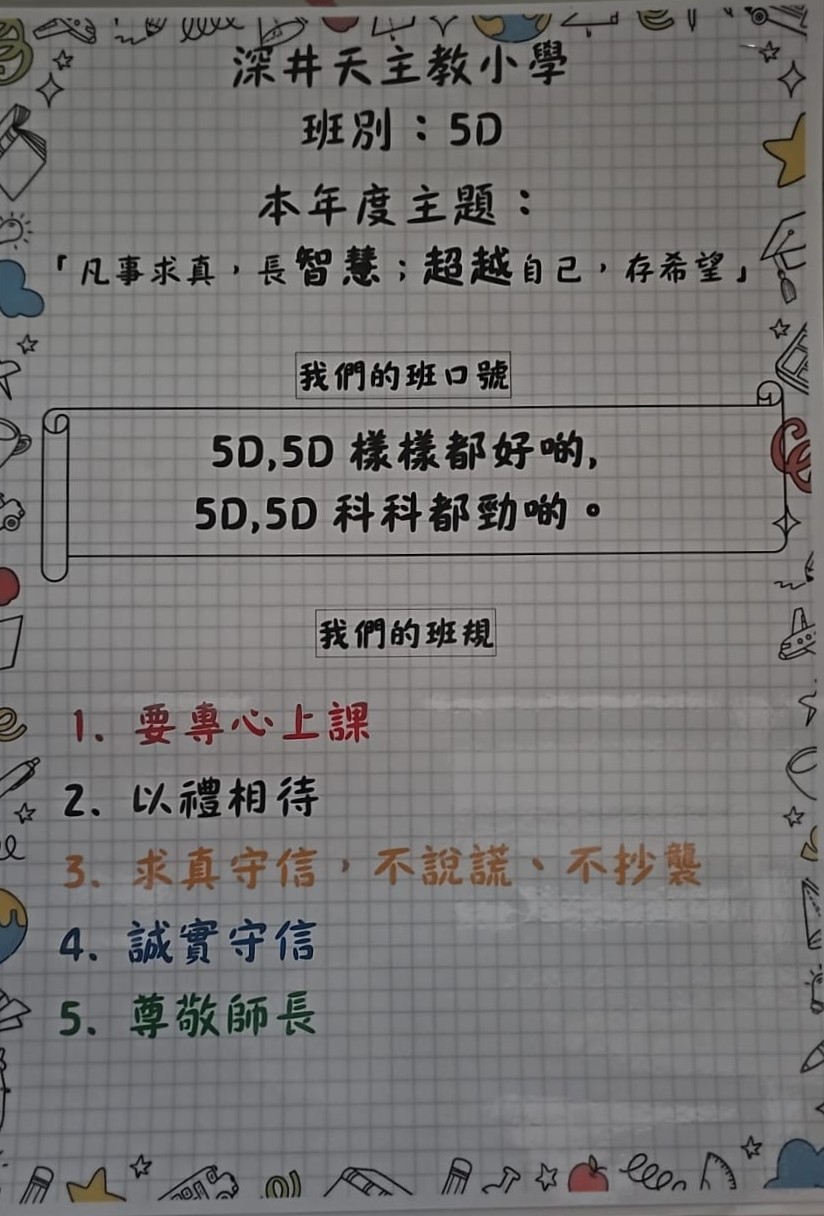 深井天主教小學
班別：5D
本年度主題：
「凡事求真，長智慧；超越自己，存希望」
我們的班口號
5D,5D 樣樣都好啲,
5D,5D 科科都勁啲。
我們的班規
1. 要專心上課
2. 以禮相待
3. 求真守信，不說謊、不抄襲
4. 誠實守信
5. 尊敬師長